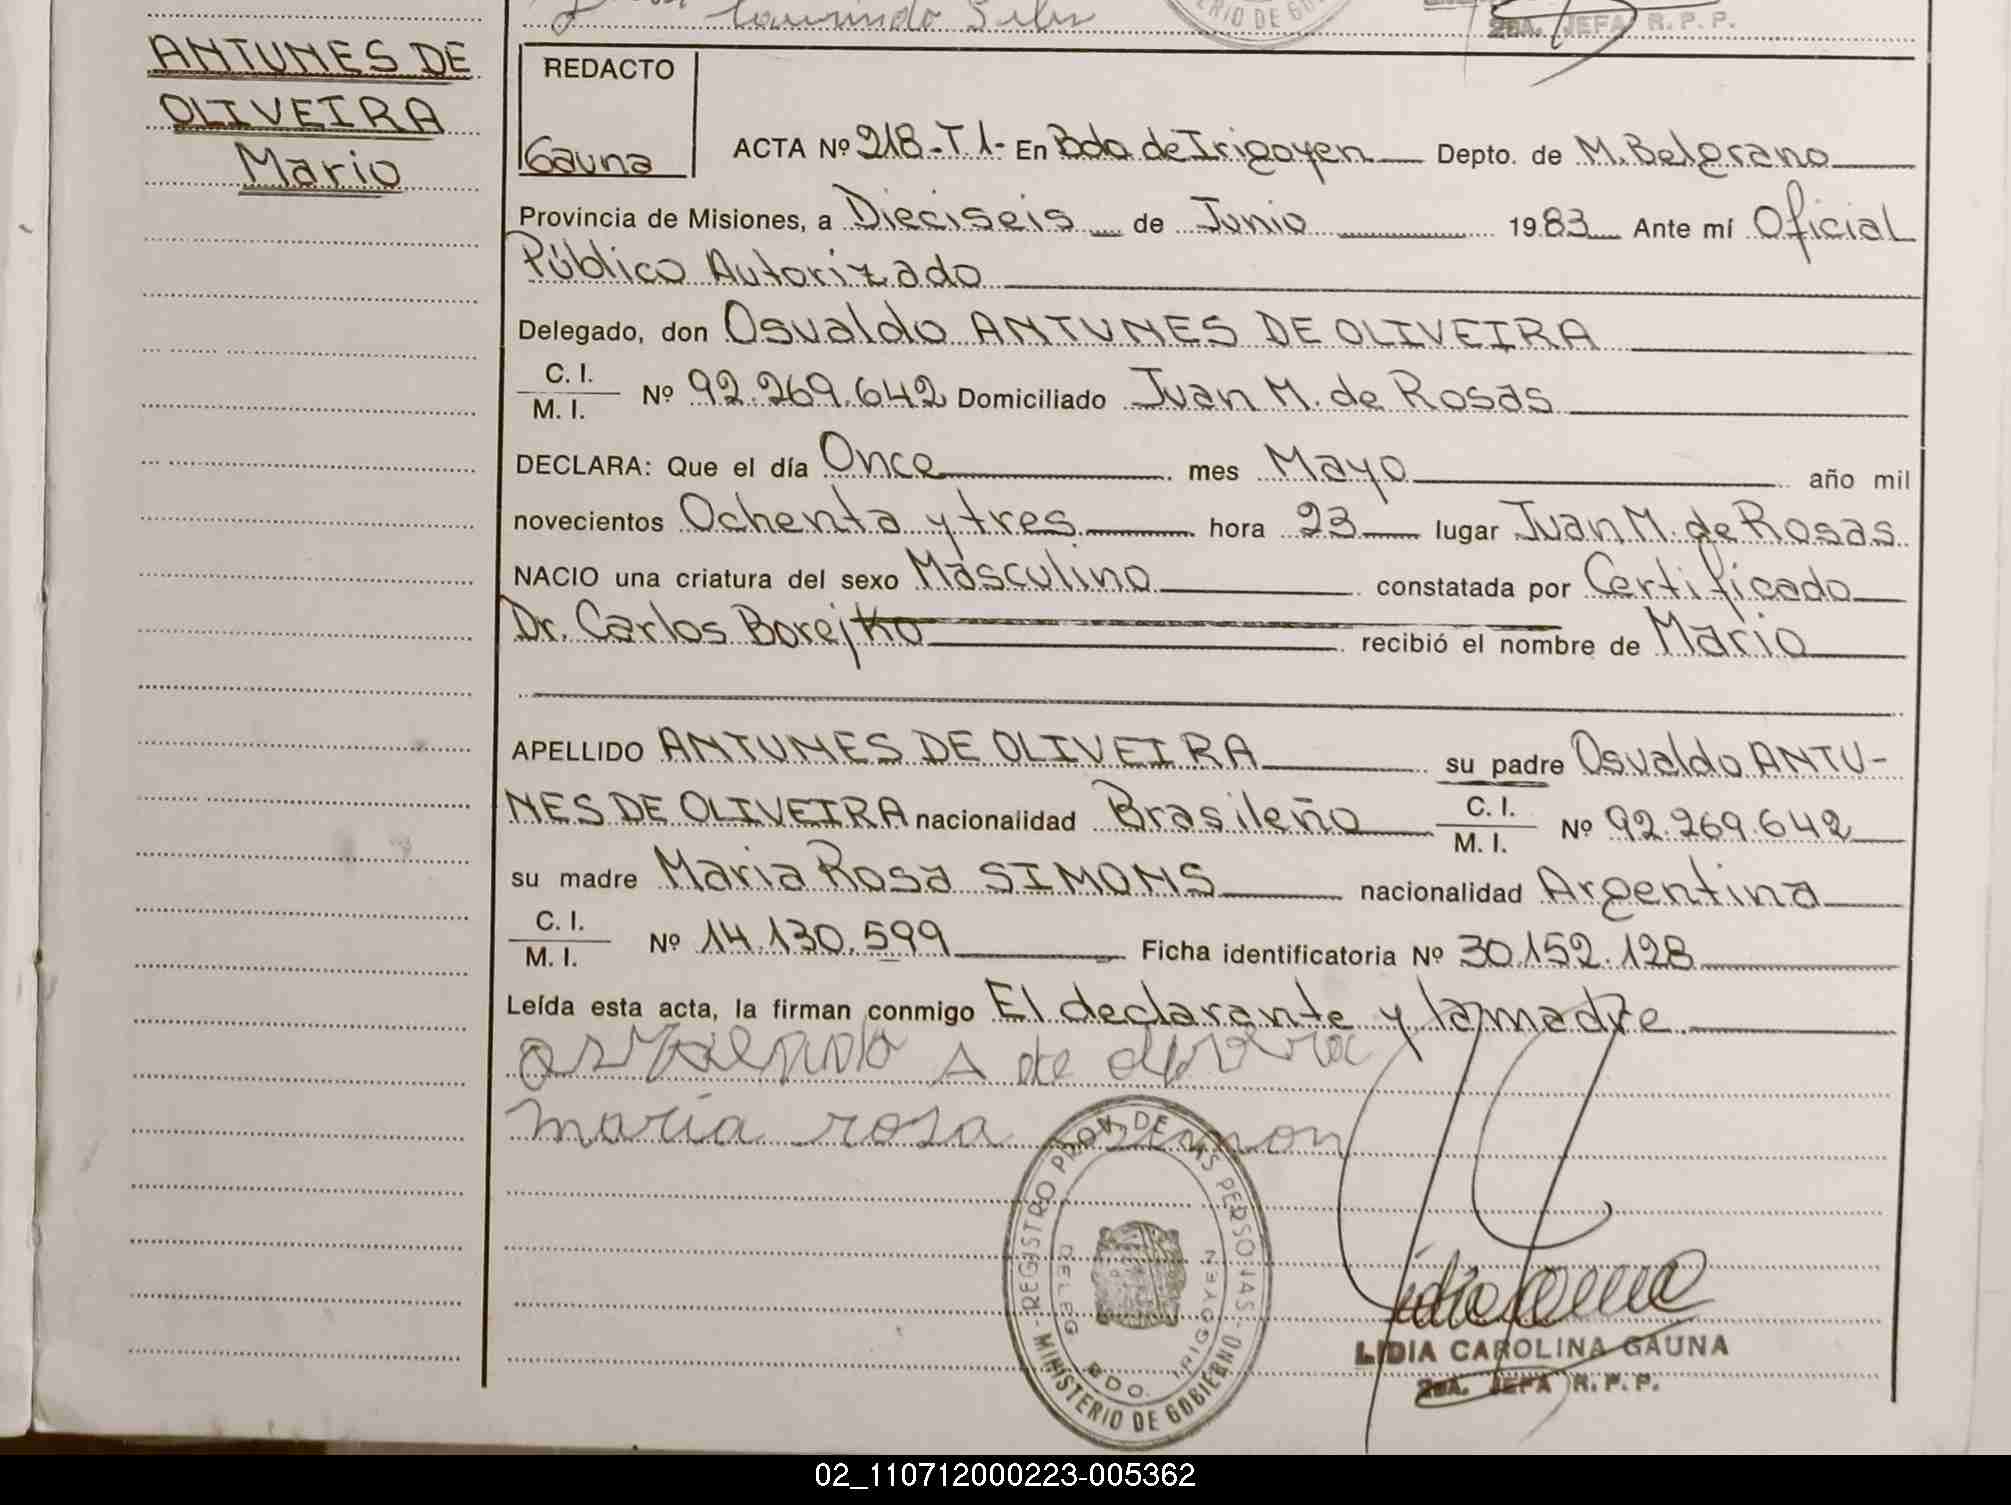 ANTUNES DE
OLIVEIRA
Mario
Laurindo Silv
2DA. JEFA R. P. P.
REDACTO
Gauna
ACTA Nº 218-T1- En Bdo de Irigoyen Depto. de M. Belgrano
Provincia de Misiones, a Dieciseis de Junio 1983 Ante mí Oficial
Público Autorizado
Delegado, don Osvaldo ANTUNES DE OLIVEIRA
C. I.
M. I. Nº 92.269.642 Domiciliado Juan M. de Rosas
DECLARA: Que el día Once mes Mayo año mil
novecientos Ochenta y tres hora 23 lugar Juan M. de Rosas
NACIO una criatura del sexo Masculino constatada por Certificado
Dr. Carlos Borejko recibió el nombre de Mario
APELLIDO ANTUNES DE OLIVEIRA su padre Osvaldo ANTU-
NES DE OLIVEIRA nacionalidad Brasileño C. I. M. I. Nº 92.269.642
su madre Maria Rosa SIMONS nacionalidad Argentina
C. I.
M. I. Nº 14.130.599 Ficha identificatoria Nº 30.152.128
Leída esta acta, la firman conmigo El declarante y la madre
A de
maria rosa simon
REGISTRO PROV. DE LAS PERSONAS - MINISTERIO DE GOBIERNO -
DELEG. BDO. IRIGOYEN
LIDIA CAROLINA GAUNA
2DA. JEFA R. P. P.
02_110712000223-005362